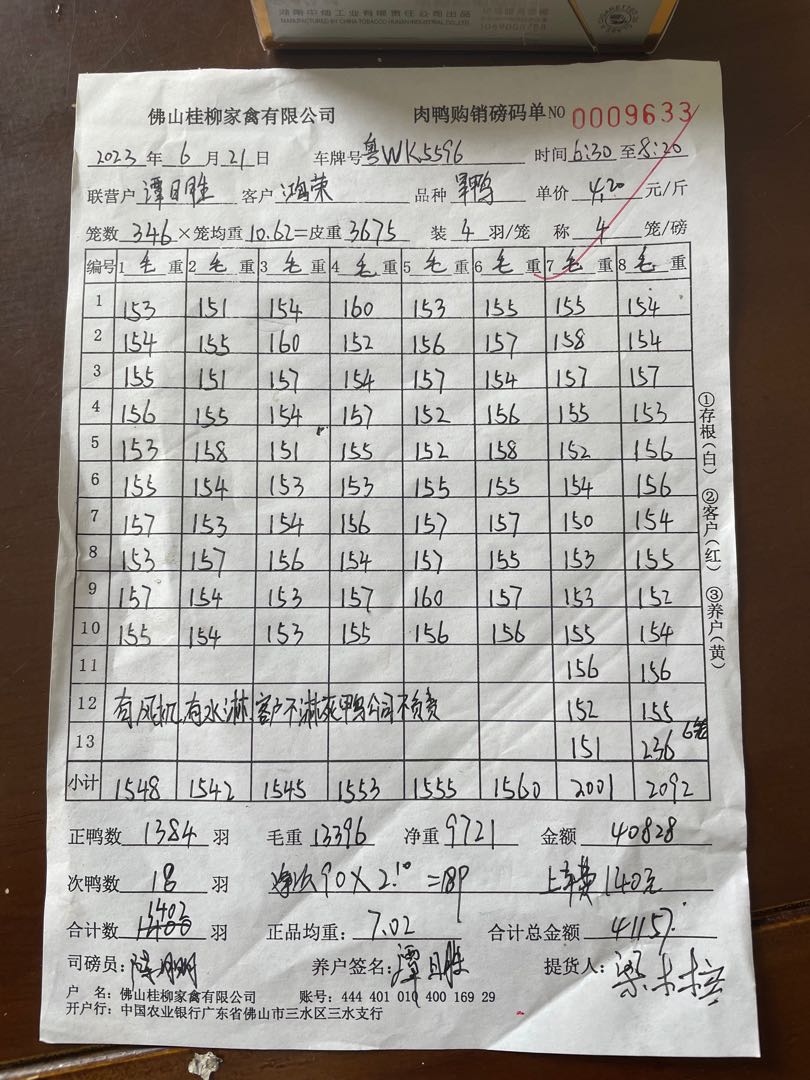 湖南中烟工业有限责任公司出品
MANUFACTURED BY CHINA TOBACCO HUNAN INDUSTRIAL CO., LTD
佛山桂柳家禽有限公司 肉鸭购销磅码单 NO 0009633
2023 年 6 月 21 日 车牌号 粤WK5596 时间 6:30 至 8:20
联营户 谭日胜 客户 鸿荣 品种 单价 4.20 元/斤
笼数 346 ×笼均重 10.62 =皮重 3675 装 4 羽/笼 称 4 笼/磅
编号 1 毛 重 2 毛 重 3 毛 重 4 毛 重 5 毛 重 6 毛 重 7 毛 重 8 毛 重
1 153 151 154 160 153 155 155 154
2 154 155 160 152 156 157 158 154
3 155 151 157 154 157 154 157 157
4 156 155 154 157 152 156 155 153
5 153 158 151 155 152 158 152 156
6 155 154 153 153 155 155 154 156
7 157 153 154 156 157 157 150 154
8 153 157 156 154 157 155 153 155
9 157 154 153 157 160 157 153 152
10 155 154 153 155 156 156 155 154
11 156 156
12 有风机 有水淋 客户不淋死鸭公司不负责 152 155
13 151 236 6笼
小计 1548 1542 1545 1553 1555 1560 2001 2092
正鸭数 1384 羽 毛重 13396 净重 9721 金额 40828
次鸭数 18 羽 90×2.10=189 上车费140元
合计数 1402 羽 正品均重: 7.02 合计总金额 41157
司磅员: 养户签名: 谭日胜 提货人:
户 名: 佛山桂柳家禽有限公司 账号: 444 401 010 400 169 29
开户行: 中国农业银行广东省佛山市三水区三水支行
①存根(白) ②客户(红) ③养户(黄)